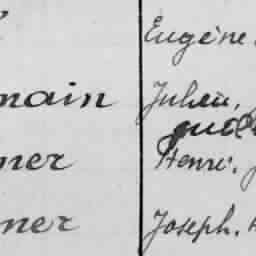 Eugène
main Julien,
ner Henri,
ner Joseph,